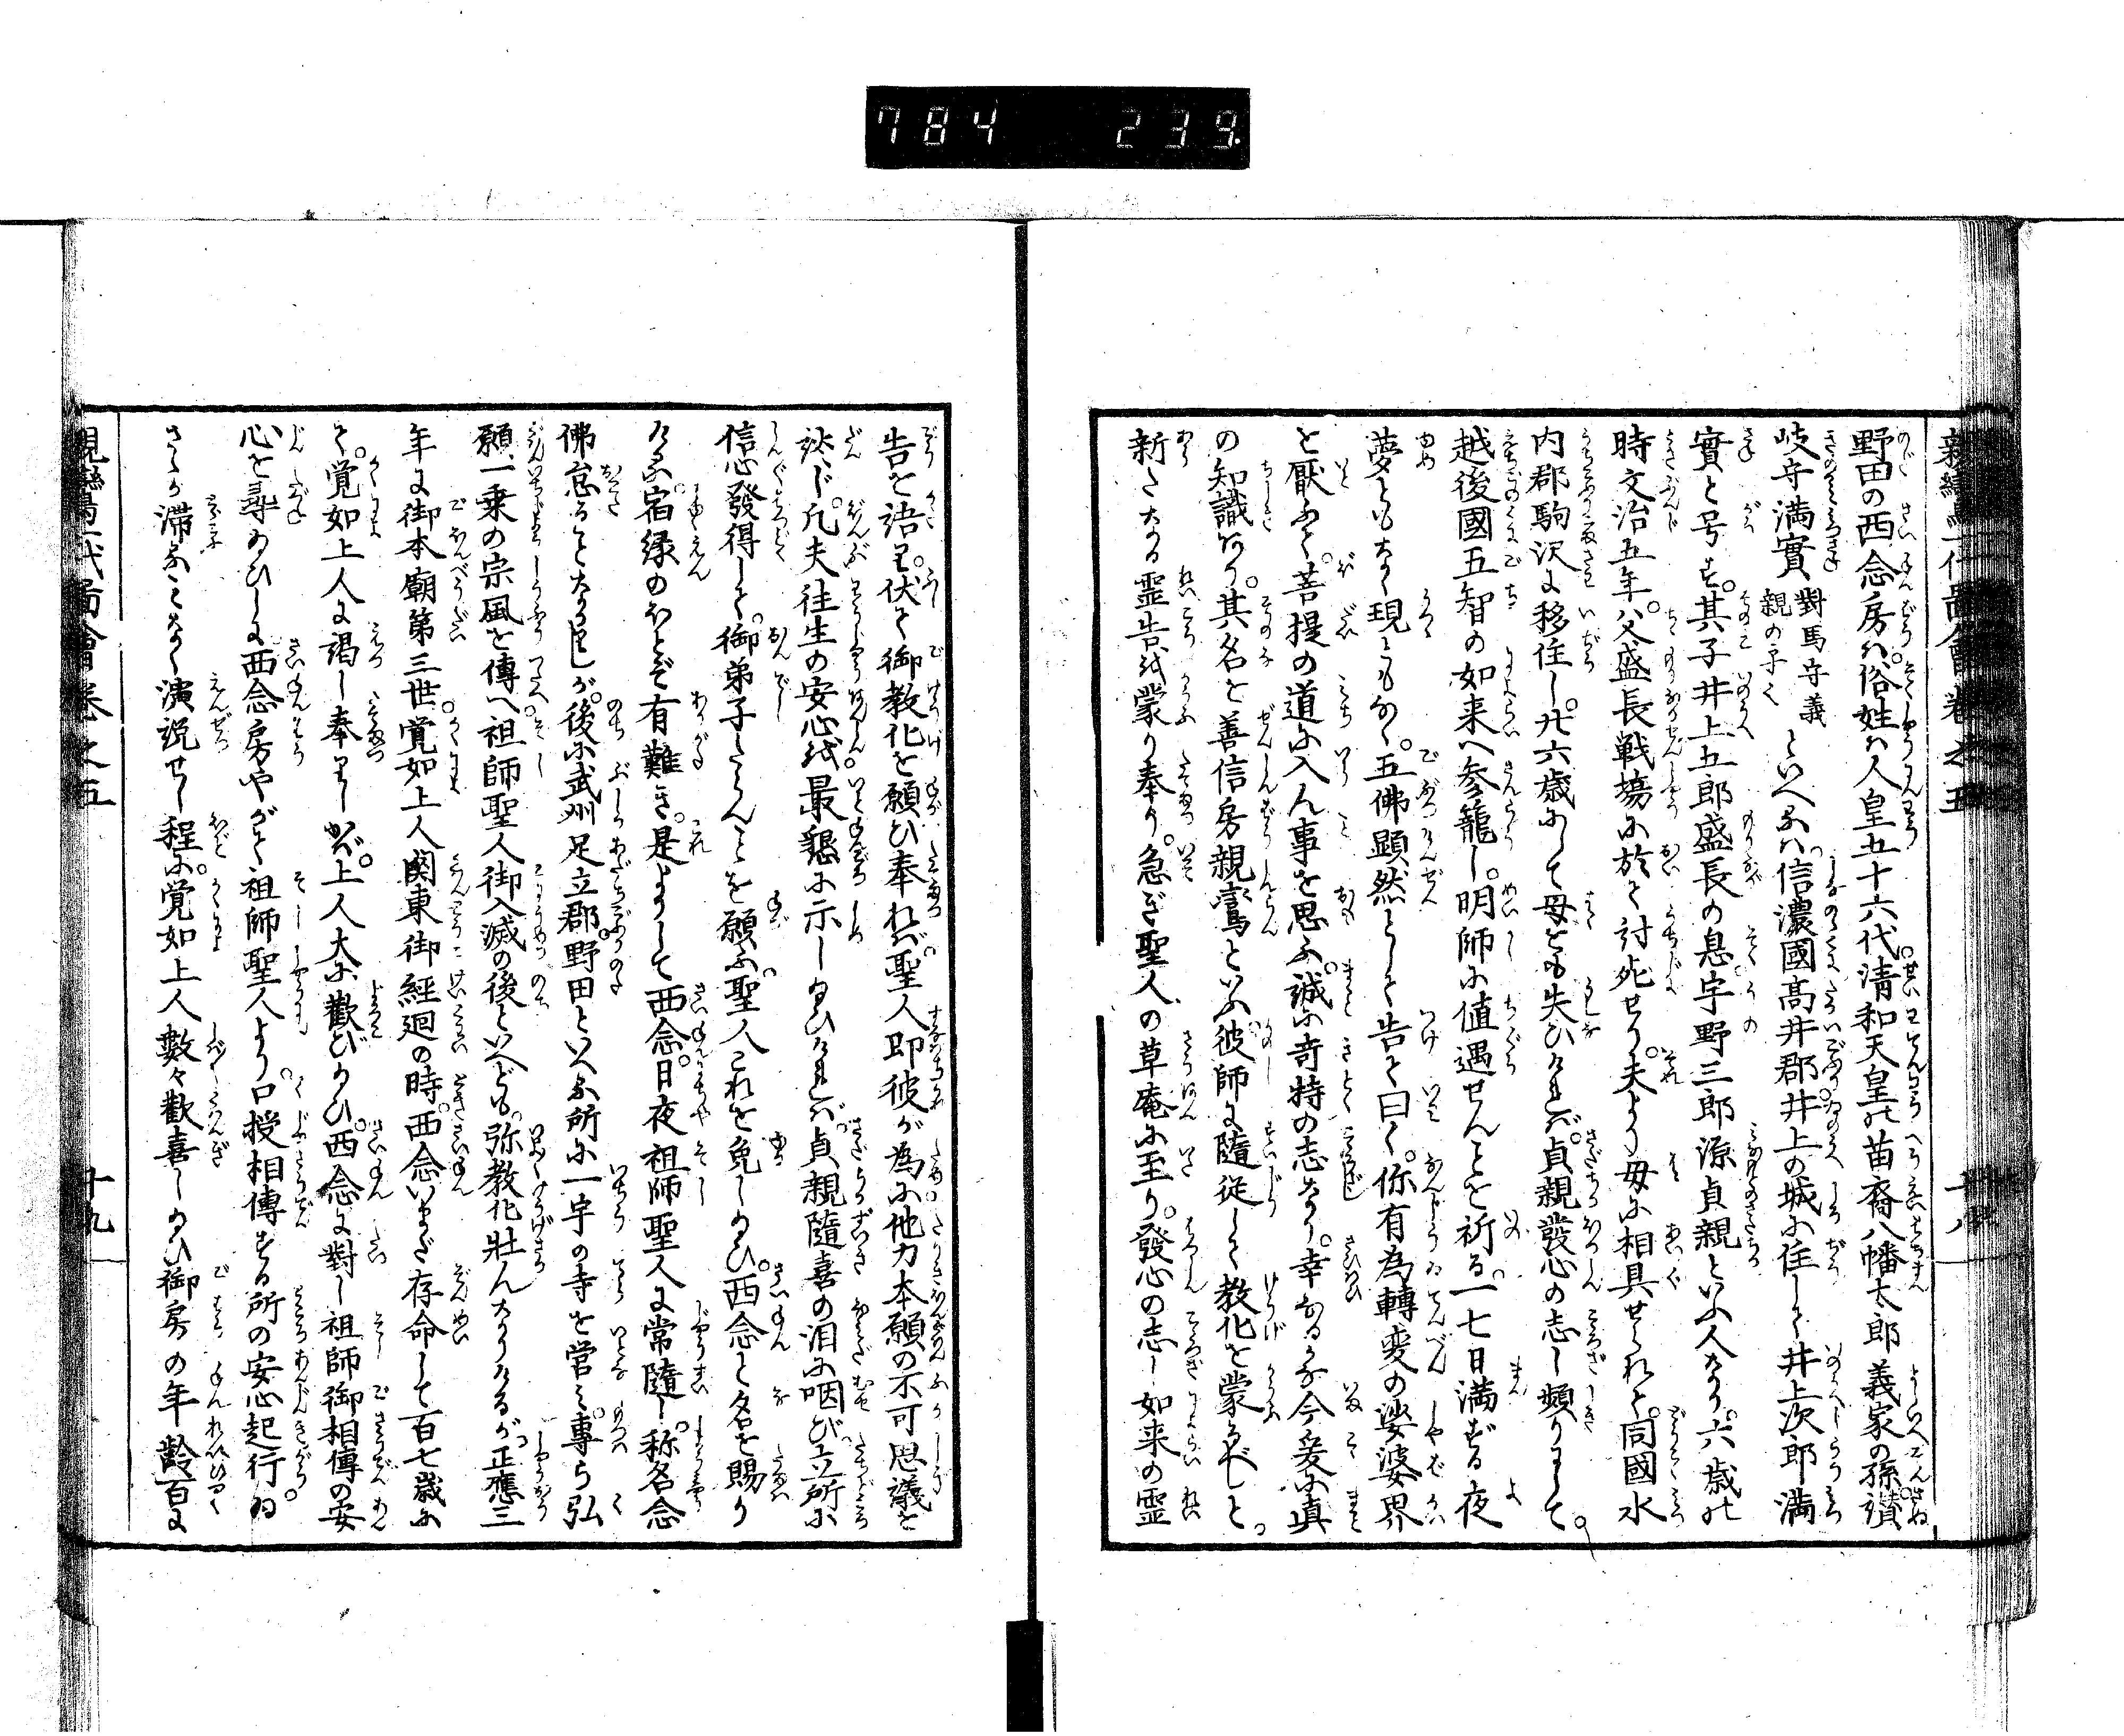 784 239
野田の西念房ハ俗姓ハ人皇五十六代清和天皇の苗裔八幡太郎義家の孫讃
岐守満實對馬守義親の子也といへるハ信濃國高井郡井上の城に住して井上次郎満
實と号す其子井上五郎盛長の息宇野三郎源貞親といふ人なり六歳の
時文治五年父盛長戦場に於て討死せり夫より母に相具せられて同國水
内郡駒沢に移住し廿六歳にして母をも失ひけれバ貞親發心の志し頻りにして
越後國五智の如来へ参籠し明師に値遇せんことを祈る一七日満ずる夜
夢ともなく現ともなく五佛顕然として告て曰く你有為轉変の娑婆界
を厭ふて菩提の道に入ん事を思ふ誠に奇特の志なり幸なるかな今爰に真
の知識あり其名を善信房親鸞といふ彼師に隨従して教化を蒙るべしと
新たなる霊告を蒙り奉り急ぎ聖人の草庵に至り發心の志し如来の霊
告を語り伏て御教化を願ひ奉れバ聖人即彼が為に他力本願の不可思議を
談じ凡夫往生の安心を最懇に示し給ひけれバ貞親隨喜の泪に咽び立所に
信心發得して御弟子たらんことを願ふ聖人これを免し給ひ西念と名を賜り
ける宿縁のほとぞ有難き是よりして西念日夜祖師聖人に常隨し称名念
佛怠ることなかりしが後に武州足立郡野田といへる所に一宇の寺を営ミ専ら弘
願一乗の宗風を傳へ祖師聖人御入滅の後といへども弥教化壮んなりけるが正應三
年に御本廟第三世覚如上人関東御経廻の時西念いまだ存命して百七歳に
て覚如上人に謁し奉りしかバ上人大に歡び給ひ西念に對し祖師御相傳の安
心を尋給ひしに西念房やがて祖師聖人より口授相傳する所の安心起行給
さゝか滞ることなく演説せし程に覚如上人數々歡喜し給ひ御房の年齢百に
親鸞一代啚會巻之五
十九